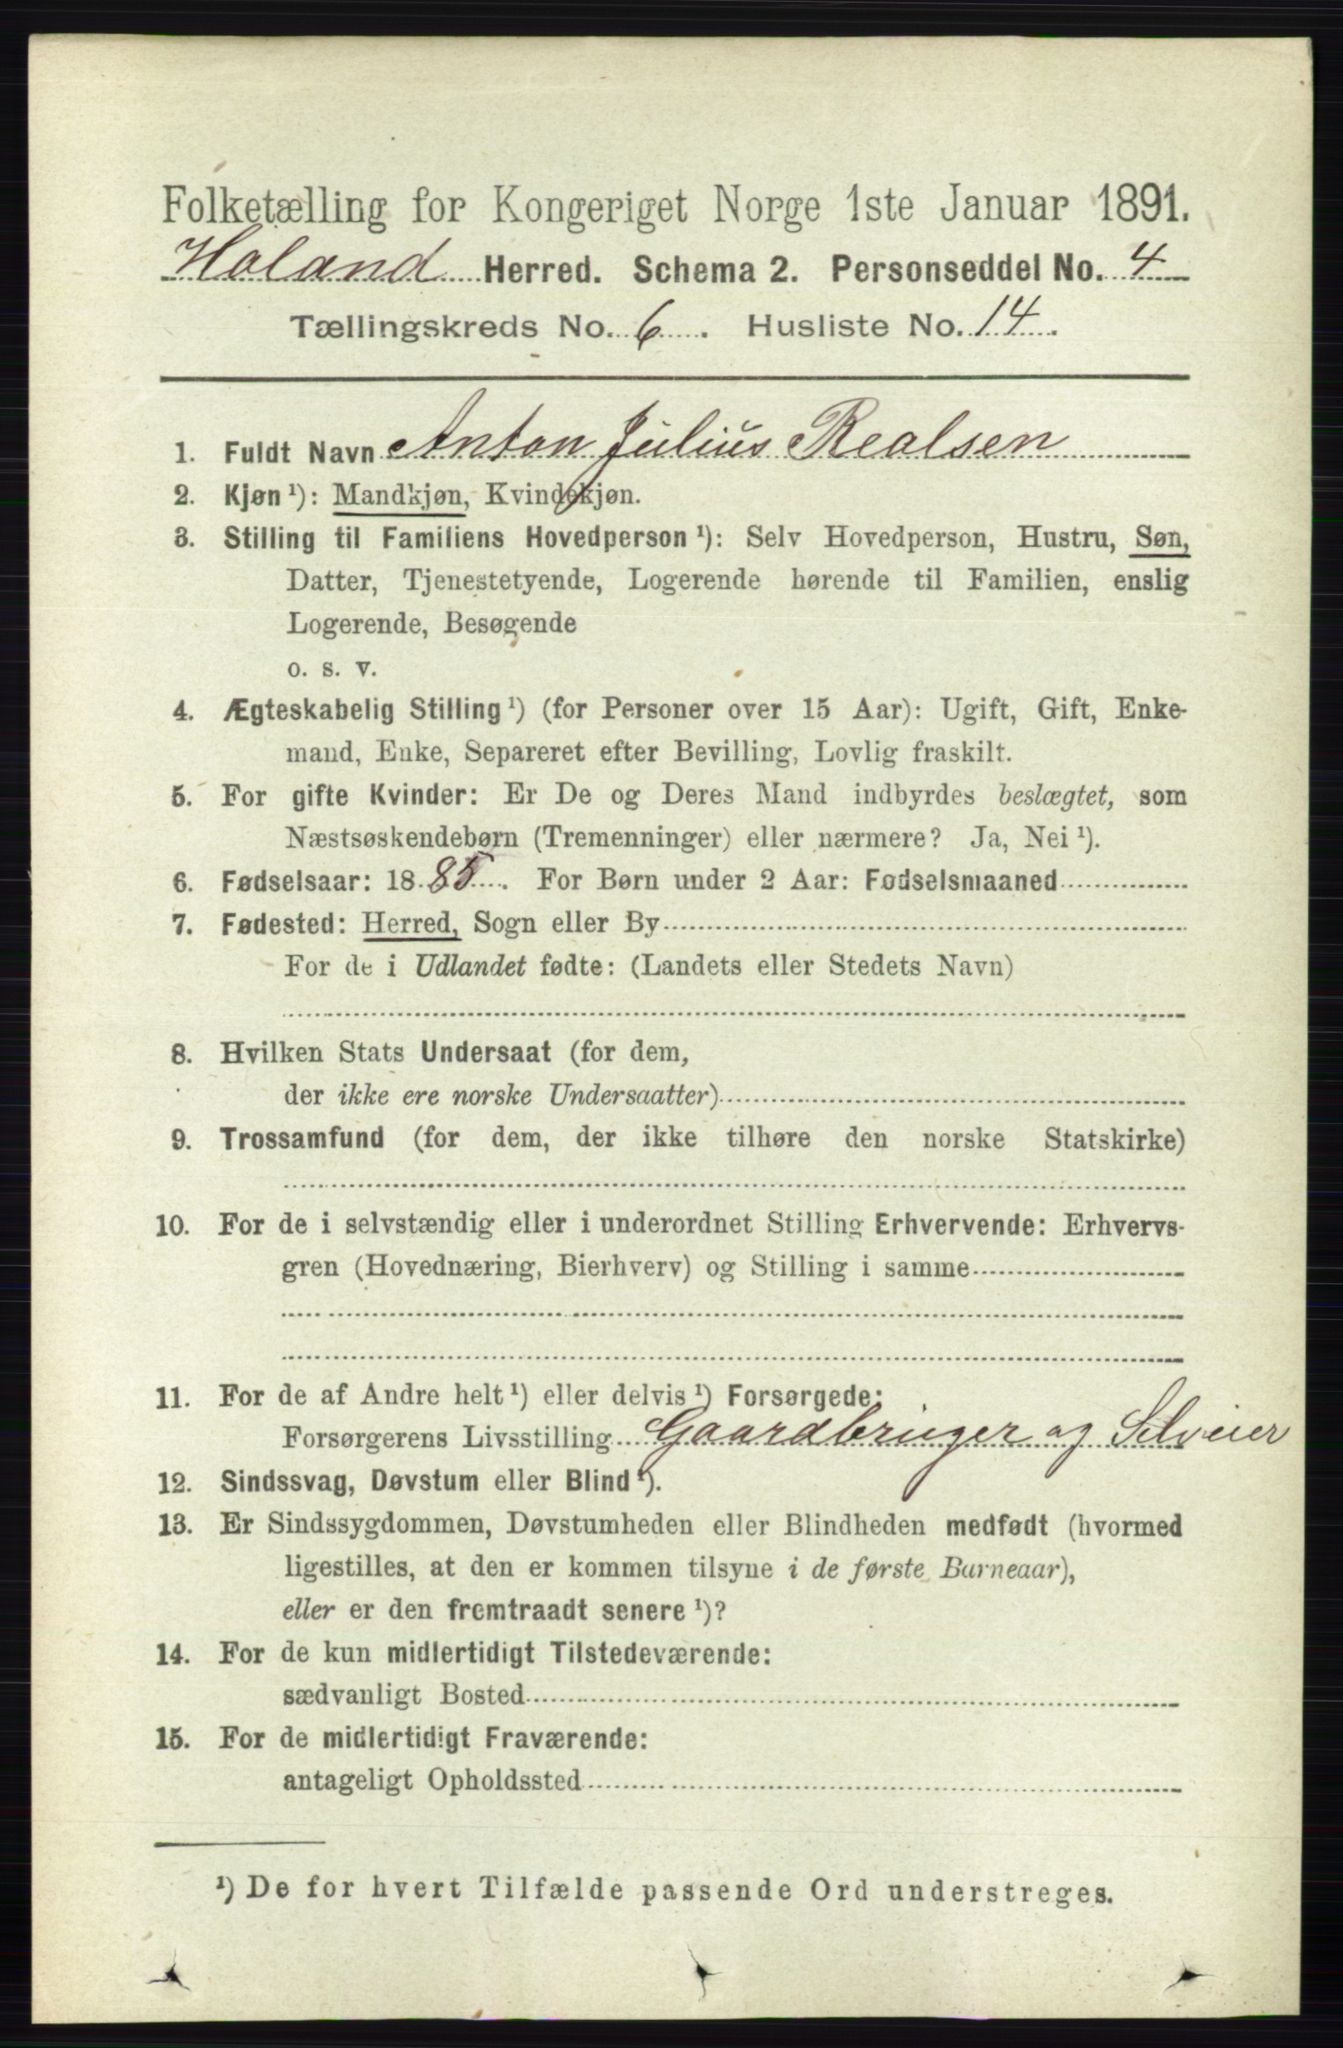 Folketælling for Kongeriget Norge 1ste Januar 1891.
Høland Herred. Schema 2. Personseddel No. 4
Tællingskreds No. 6. Husliste No. 14.
1. Fuldt Navn Anton Julius Realsen
2. Kjøn ¹): Mandkjøn, Kvindekjøn.
3. Stilling til Familiens Hovedperson ¹): Selv Hovedperson, Hustru, Søn,
Datter, Tjenestetyende, Logerende hørende til Familien, enslig
Logerende, Besøgende
o. s. v.
4. Ægteskabelig Stilling ¹) (for Personer over 15 Aar): Ugift, Gift, Enke-
mand, Enke, Separeret efter Bevilling, Lovlig fraskilt.
5. For gifte Kvinder: Er De og Deres Mand indbyrdes beslægtet, som
Næstsøskendebørn (Tremenninger) eller nærmere? Ja, Nei ¹).
6. Fødselsaar: 1885. For Børn under 2 Aar: Fødselsmaaned
7. Fødested: Herred, Sogn eller By
For de i Udlandet fødte: (Landets eller Stedets Navn)
8. Hvilken Stats Undersaat (for dem,
der ikke ere norske Undersaatter)
9. Trossamfund (for dem, der ikke tilhøre den norske Statskirke)
10. For de i selvstændig eller i underordnet Stilling Erhvervende: Erhvervs-
gren (Hovednæring, Bierhverv) og Stilling i samme
11. For de af Andre helt ¹) eller delvis ¹) Forsørgede:
Forsørgerens Livsstilling Gaardbruger og Selveier
12. Sindssvag, Døvstum eller Blind ¹).
13. Er Sindssygdommen, Døvstumheden eller Blindheden medfødt (hvormed
ligestilles, at den er kommen tilsyne i de første Barneaar),
eller er den fremtraadt senere ¹)?
14. For de kun midlertidigt Tilstedeværende:
sædvanligt Bosted
15. For de midlertidigt Fraværende:
antageligt Opholdssted
¹) De for hvert Tilfælde passende Ord understreges.